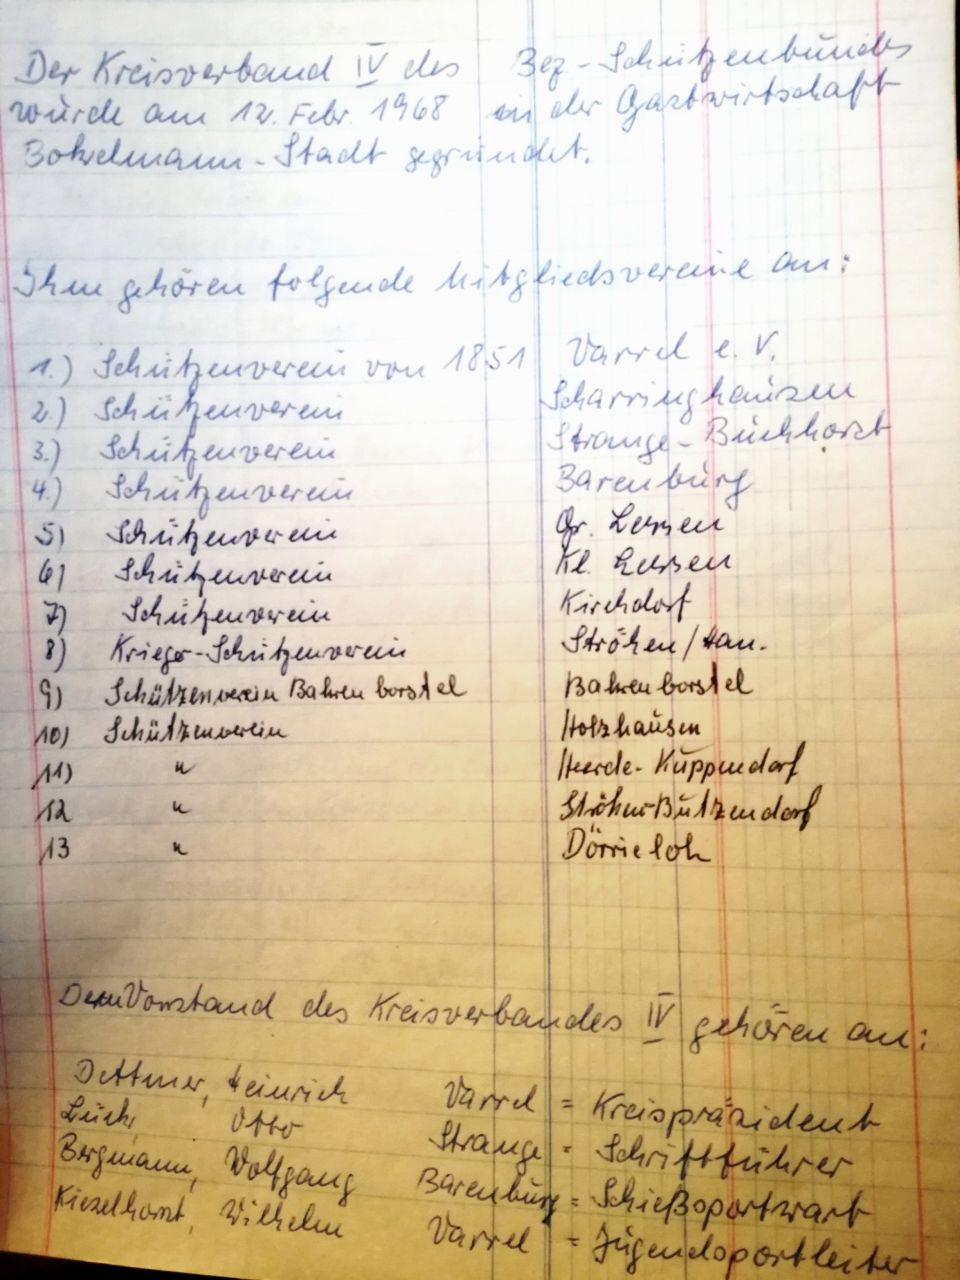 Der Kreisverband IV des Bez-Schützenbundes
wurde am 12. Febr. 1968 in der Gastwirtschaft
Bokelmann-Stadt gegründet.
Ihm gehören folgende Mitgliedsvereine an:
1.) Schützenverein von 1851 Varrel e. V.
2.) Schützenverein Scharringhausen
3.) Schützenverein Strange-Buchhorst
4.) Schützenverein Barenburg
5) Schützenverein Gr. Lessen
6) Schützenverein Kl. Lessen
7) Schützenverein Kirchdorf
8) Krieger-Schützenverein Ströhen/Han.
9) Schützenverein Bahrenborstel Bahrenborstel
10) Schützenverein Holzhausen
11) " Heerde-Kuppendorf
12 " Ströhen-Butzendorf
13 " Dörrieloh
Dem Vorstand des Kreisverbandes IV gehören an:
Dettmer, Heinrich Varrel = Kreispräsident
Otto Strange = Schriftführer
Bergmann, Wolfgang Barenburg = Schießsportwart
Kieselhorst, Wilhelm Varrel = Jugendsportleiter